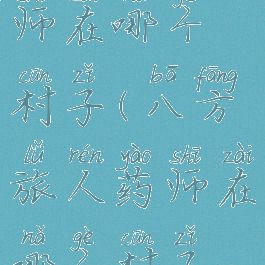 师在哪个
cūn zǐ bā fāng
村子(八方
lǚ rén yào shī zài
旅人药师在
nǎ gè cūn zǐ